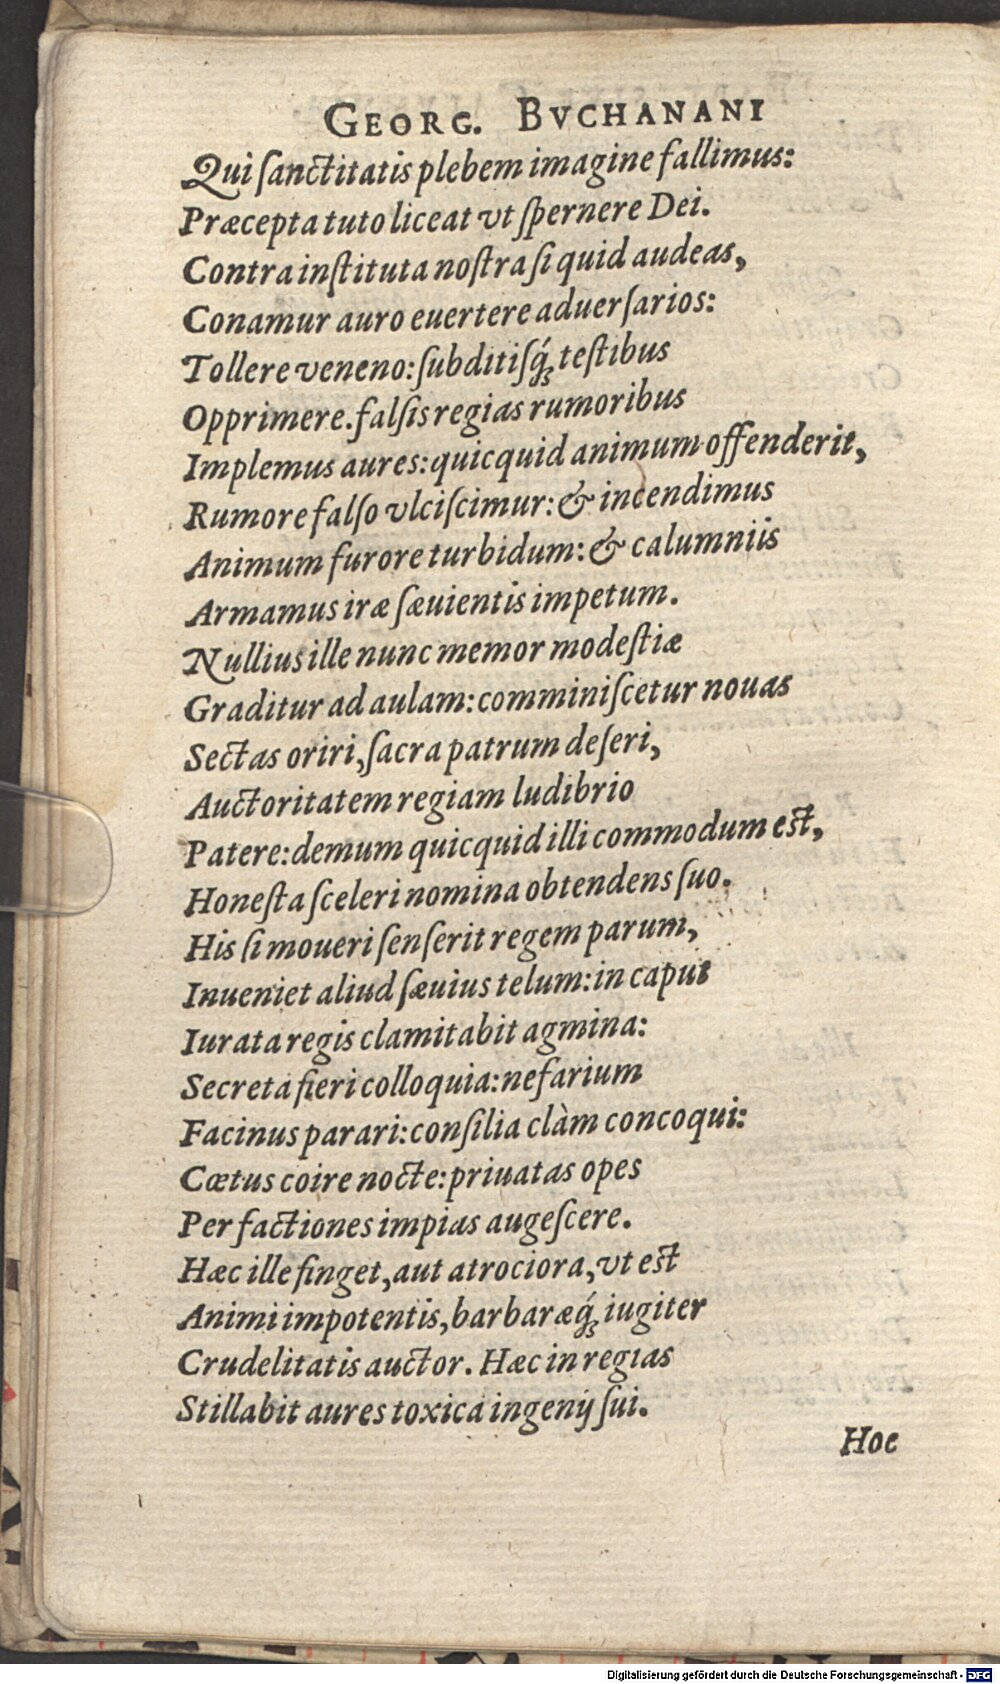 GEORG. BVCHANANI
Qui ſanctitatis plebem imagine fallimus:
Præcepta tuto liceat vt ſpernere Dei.
Contra inſtituta noſtra ſi quid audeas,
Conamur auro euertere aduerſarios:
Tollere veneno: ſubditiſq́ꝫ teſtibus
Opprimere. falſis regias rumoribus
Implemus aures: quicquid animum offenderit,
Rumore falſo vlciſcimur: & incendimus
Animum furore turbidum: & calumniis
Armamus iræ ſæuientis impetum.
Nullius ille nunc memor modeſtiæ
Graditur ad aulam: comminiſcetur nouas
Sectas oriri, ſacra patrum deſeri,
Auctoritatem regiam ludibrio
Patere: demum quicquid illi commodum eſt,
Honeſta ſceleri nomina obtendens ſuo.
His ſi moueri ſenſerit regem parum,
Inueniet aliud ſæuius telum: in caput
Iurata regis clamitabit agmina:
Secreta fieri colloquia: nefarium
Facinus parari: conſilia clàm concoqui:
Cœtus coire nocte: priuatas opes
Per factiones impias augeſcere.
Hæc ille finget, aut atrociora, vt eſt
Animi impotentis, barbaræq́ꝫ iugiter
Crudelitatis auctor. Hæc in regias
Stillabit aures toxica ingenij ſui.
Hoc
Digitalisierung gefördert durch die Deutsche Forschungsgemeinschaft - DFG